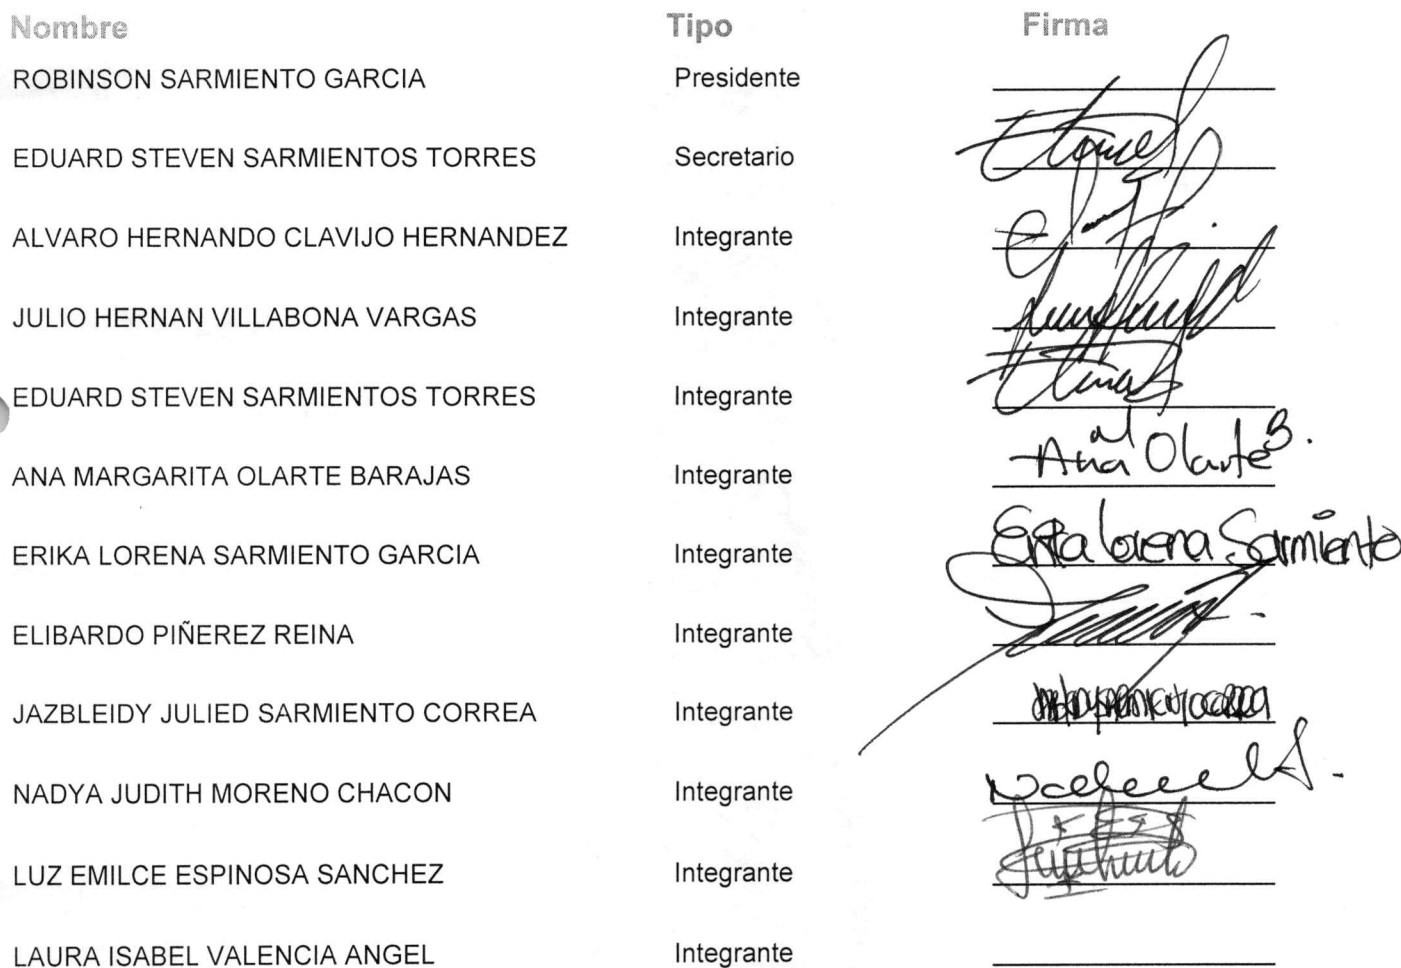 Nombre Tipo Firma
ROBINSON SARMIENTO GARCIA Presidente
EDUARD STEVEN SARMIENTOS TORRES Secretario
ALVARO HERNANDO CLAVIJO HERNANDEZ Integrante
JULIO HERNAN VILLABONA VARGAS Integrante
EDUARD STEVEN SARMIENTOS TORRES Integrante
ANA MARGARITA OLARTE BARAJAS Integrante Ana Olarte B.
ERIKA LORENA SARMIENTO GARCIA Integrante Erika Lorena Sarmiento
ELIBARDO PIÑEREZ REINA Integrante
JAZBLEIDY JULIED SARMIENTO CORREA Integrante
NADYA JUDITH MORENO CHACON Integrante
LUZ EMILCE ESPINOSA SANCHEZ Integrante
LAURA ISABEL VALENCIA ANGEL Integrante